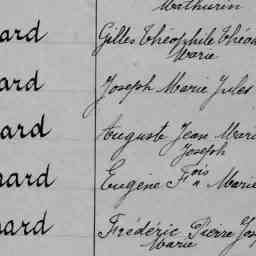 Mathurin
ard Gilles Théophile Théo
Marie
ard Joseph Marie Jules
ard Auguste Jean Mari
Joseph
ard Eugène Fois " Marie
ard Frédéric Pierre Jos
Marie